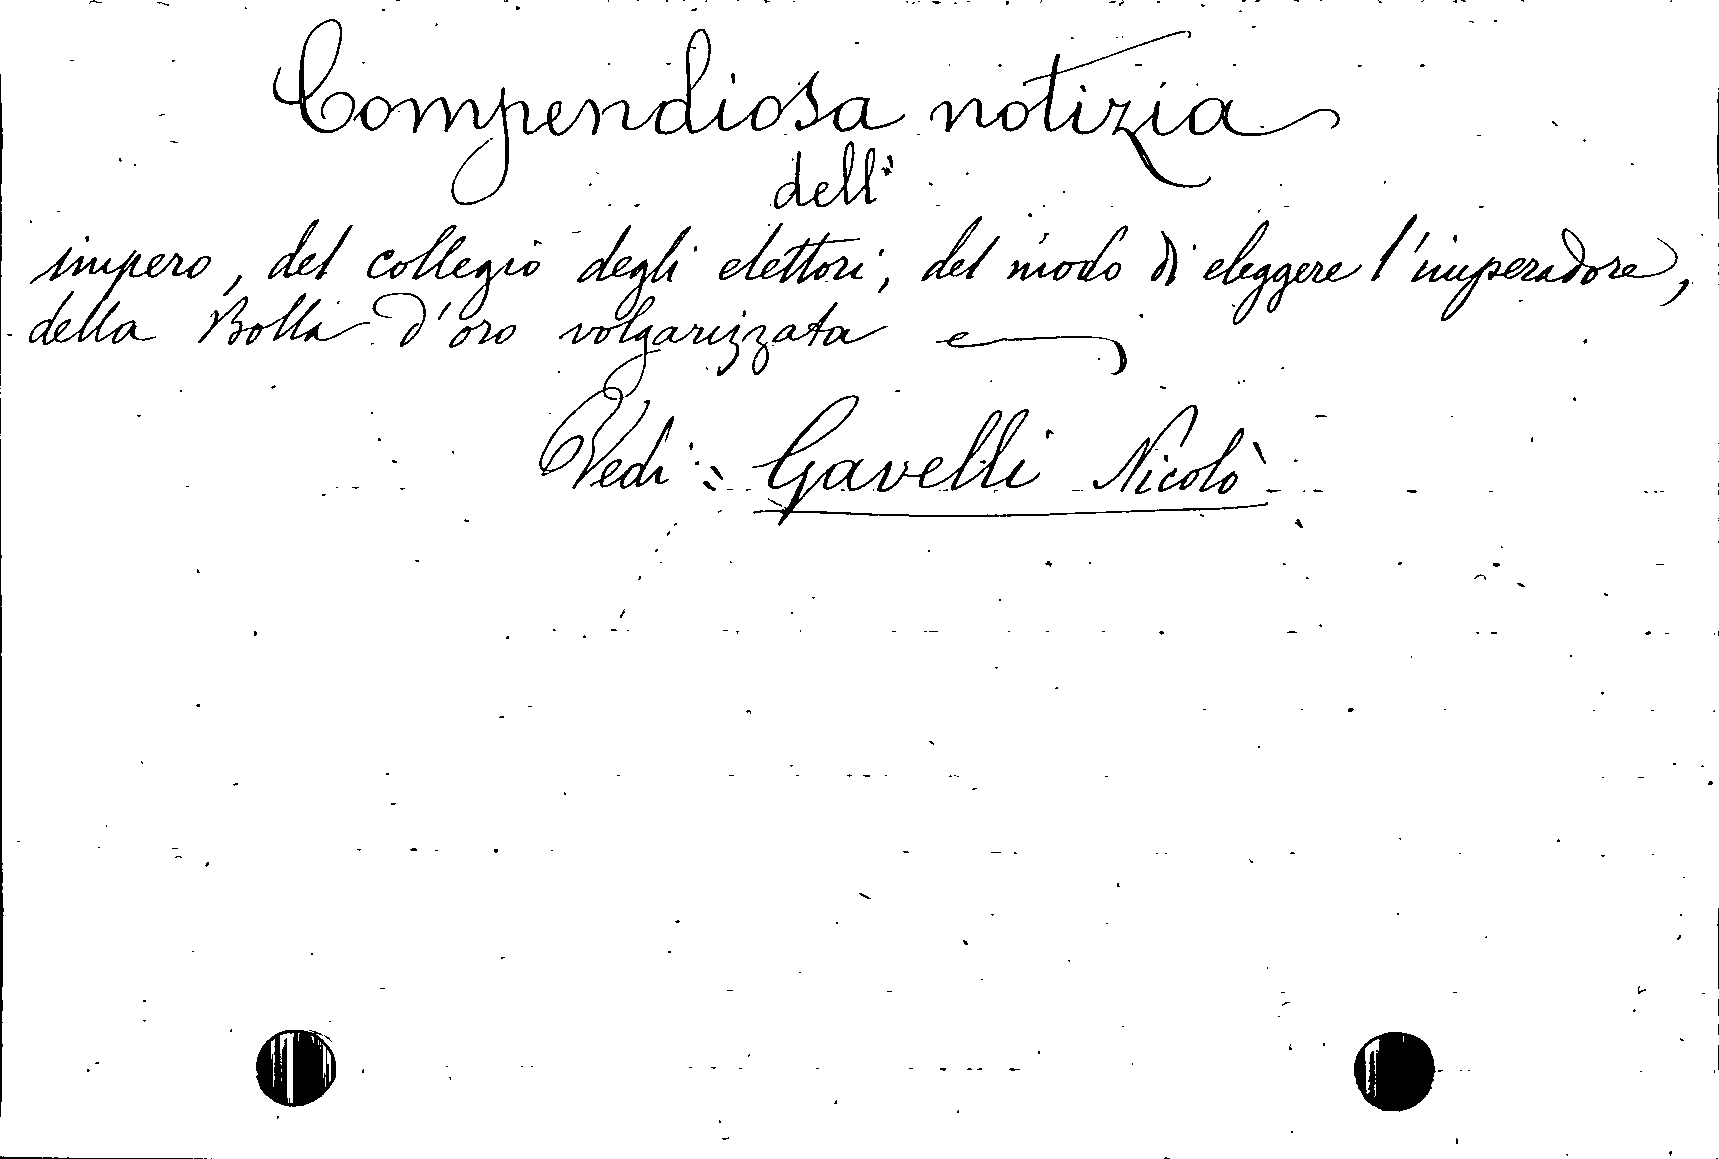 Compendiosa notizia
dell'
impero, del collegio degli elettori, del modo di eleggere l'imperadore,
della Bolla d'oro volgarizzata
Vedi: Gavelli Nicolò